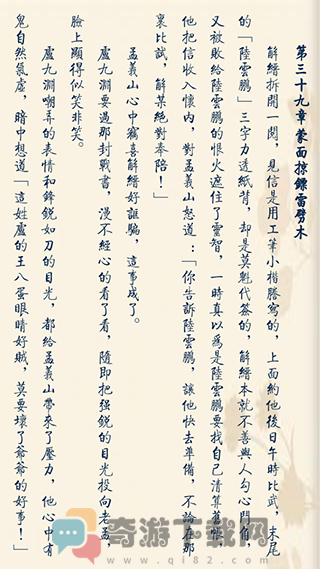 第三十九章 蒙面掠鏢雷劈木
解縉拆開一閱，見信是用工筆小楷謄寫的，上面約他後日午時比武，末尾
的「陸雲鵬」三字力透紙背，却是莫魁代簽的，解縉本就不善與人勾心鬥角，
又被敗給陸雲鵬的恨火遮住了靈智，一時真以爲是陸雲鵬要找自己清算舊
他把信收入懷內，對孟義山怒道：「你告訴陸雲鵬，讓他快去準備，不論在那
裏比試，解某絕對奉陪！」
孟義山心中竊喜解縉好誆騙，這事成了。
盧九淵要過那封戰書，漫不經心的看了看，隨即把强銳的目光投向老孟，
臉上顯得似笑非笑。
盧九淵嘲弄的表情和鋒銳如刀的目光，都給孟義山帶來了壓力，他心中有
鬼自然氣虛，暗中想道「這姓盧的王八蛋眼睛好賊，莫要壞了爺爺的好事！」
奇游下载网
www.qi82.com